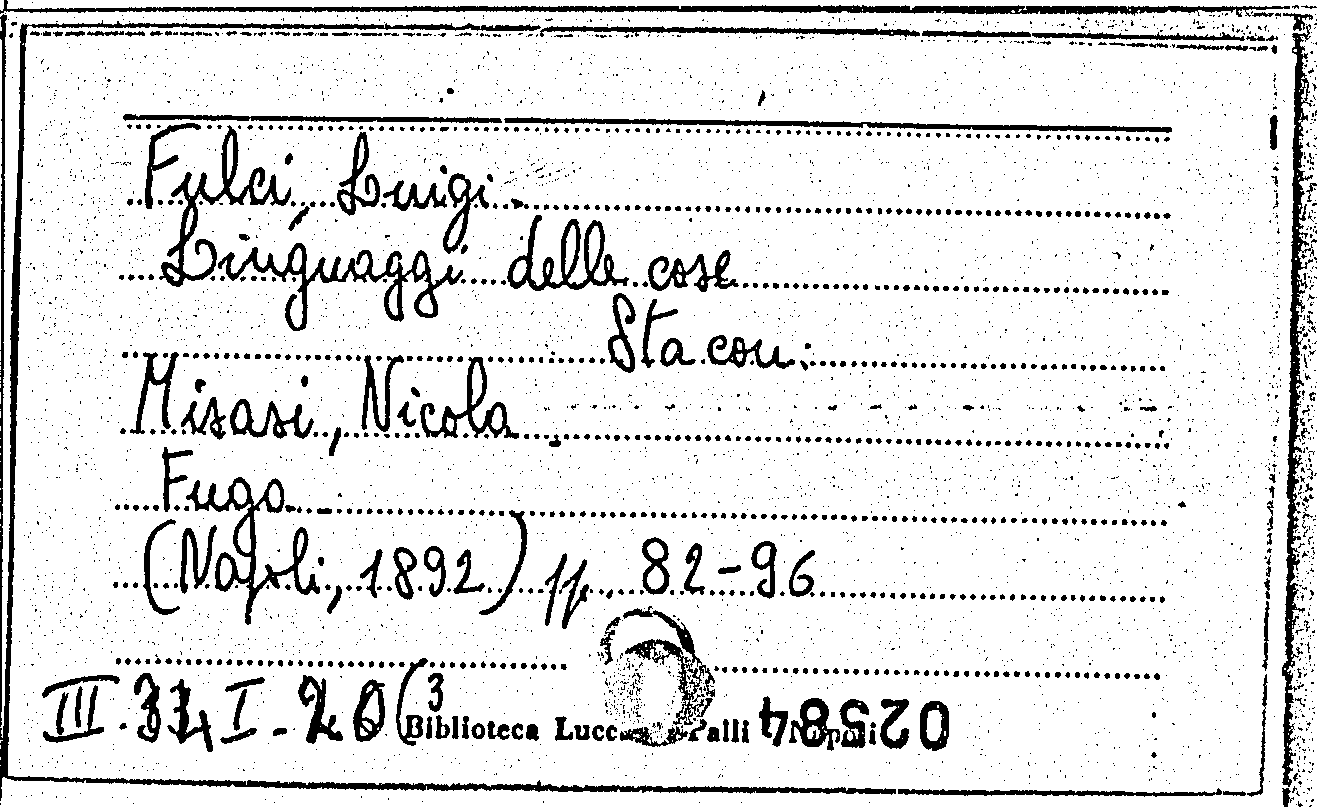 Fulci, Luigi.
Linguaggi delle cose
Sta con:
Misasi, Nicola.
Fugo.
(Napoli, 1892) pp. 82-96
III. I - (3
Biblioteca Lucchesi Palli Napoli
02584